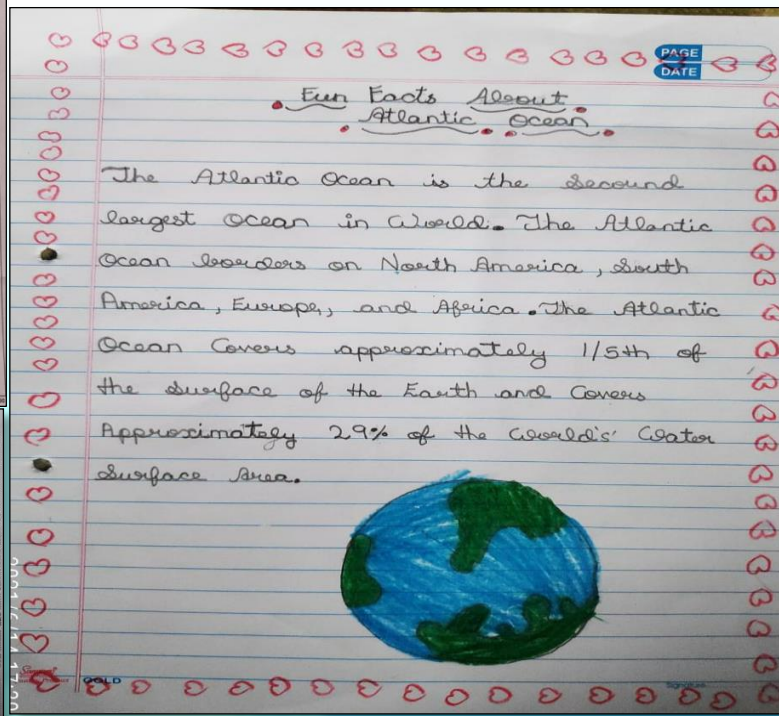 PAGE
DATE
Fun Facts About
Atlantic Ocean
The Atlantic Ocean is the secound
largest Ocean in World. The Atlantic
Ocean borders on North America, South
America, Europe, and Africa. The Atlantic
Ocean Covers approximately 1/5th of
the surface of the Earth and Covers
Approximately 29% of the World's' Water
Surface Area.
GOLD
Signature